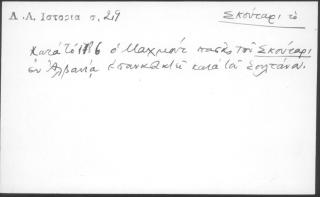 Λ.Λ. Ιστορία σ. 29
Σκούταρι τό
Κατά τό 1786 ὁ Μαχμούτ πασᾶς τοῦ Σκούταρι
ἐν Ἀλβανίᾳ κατά τοῦ Σουλτάνου.